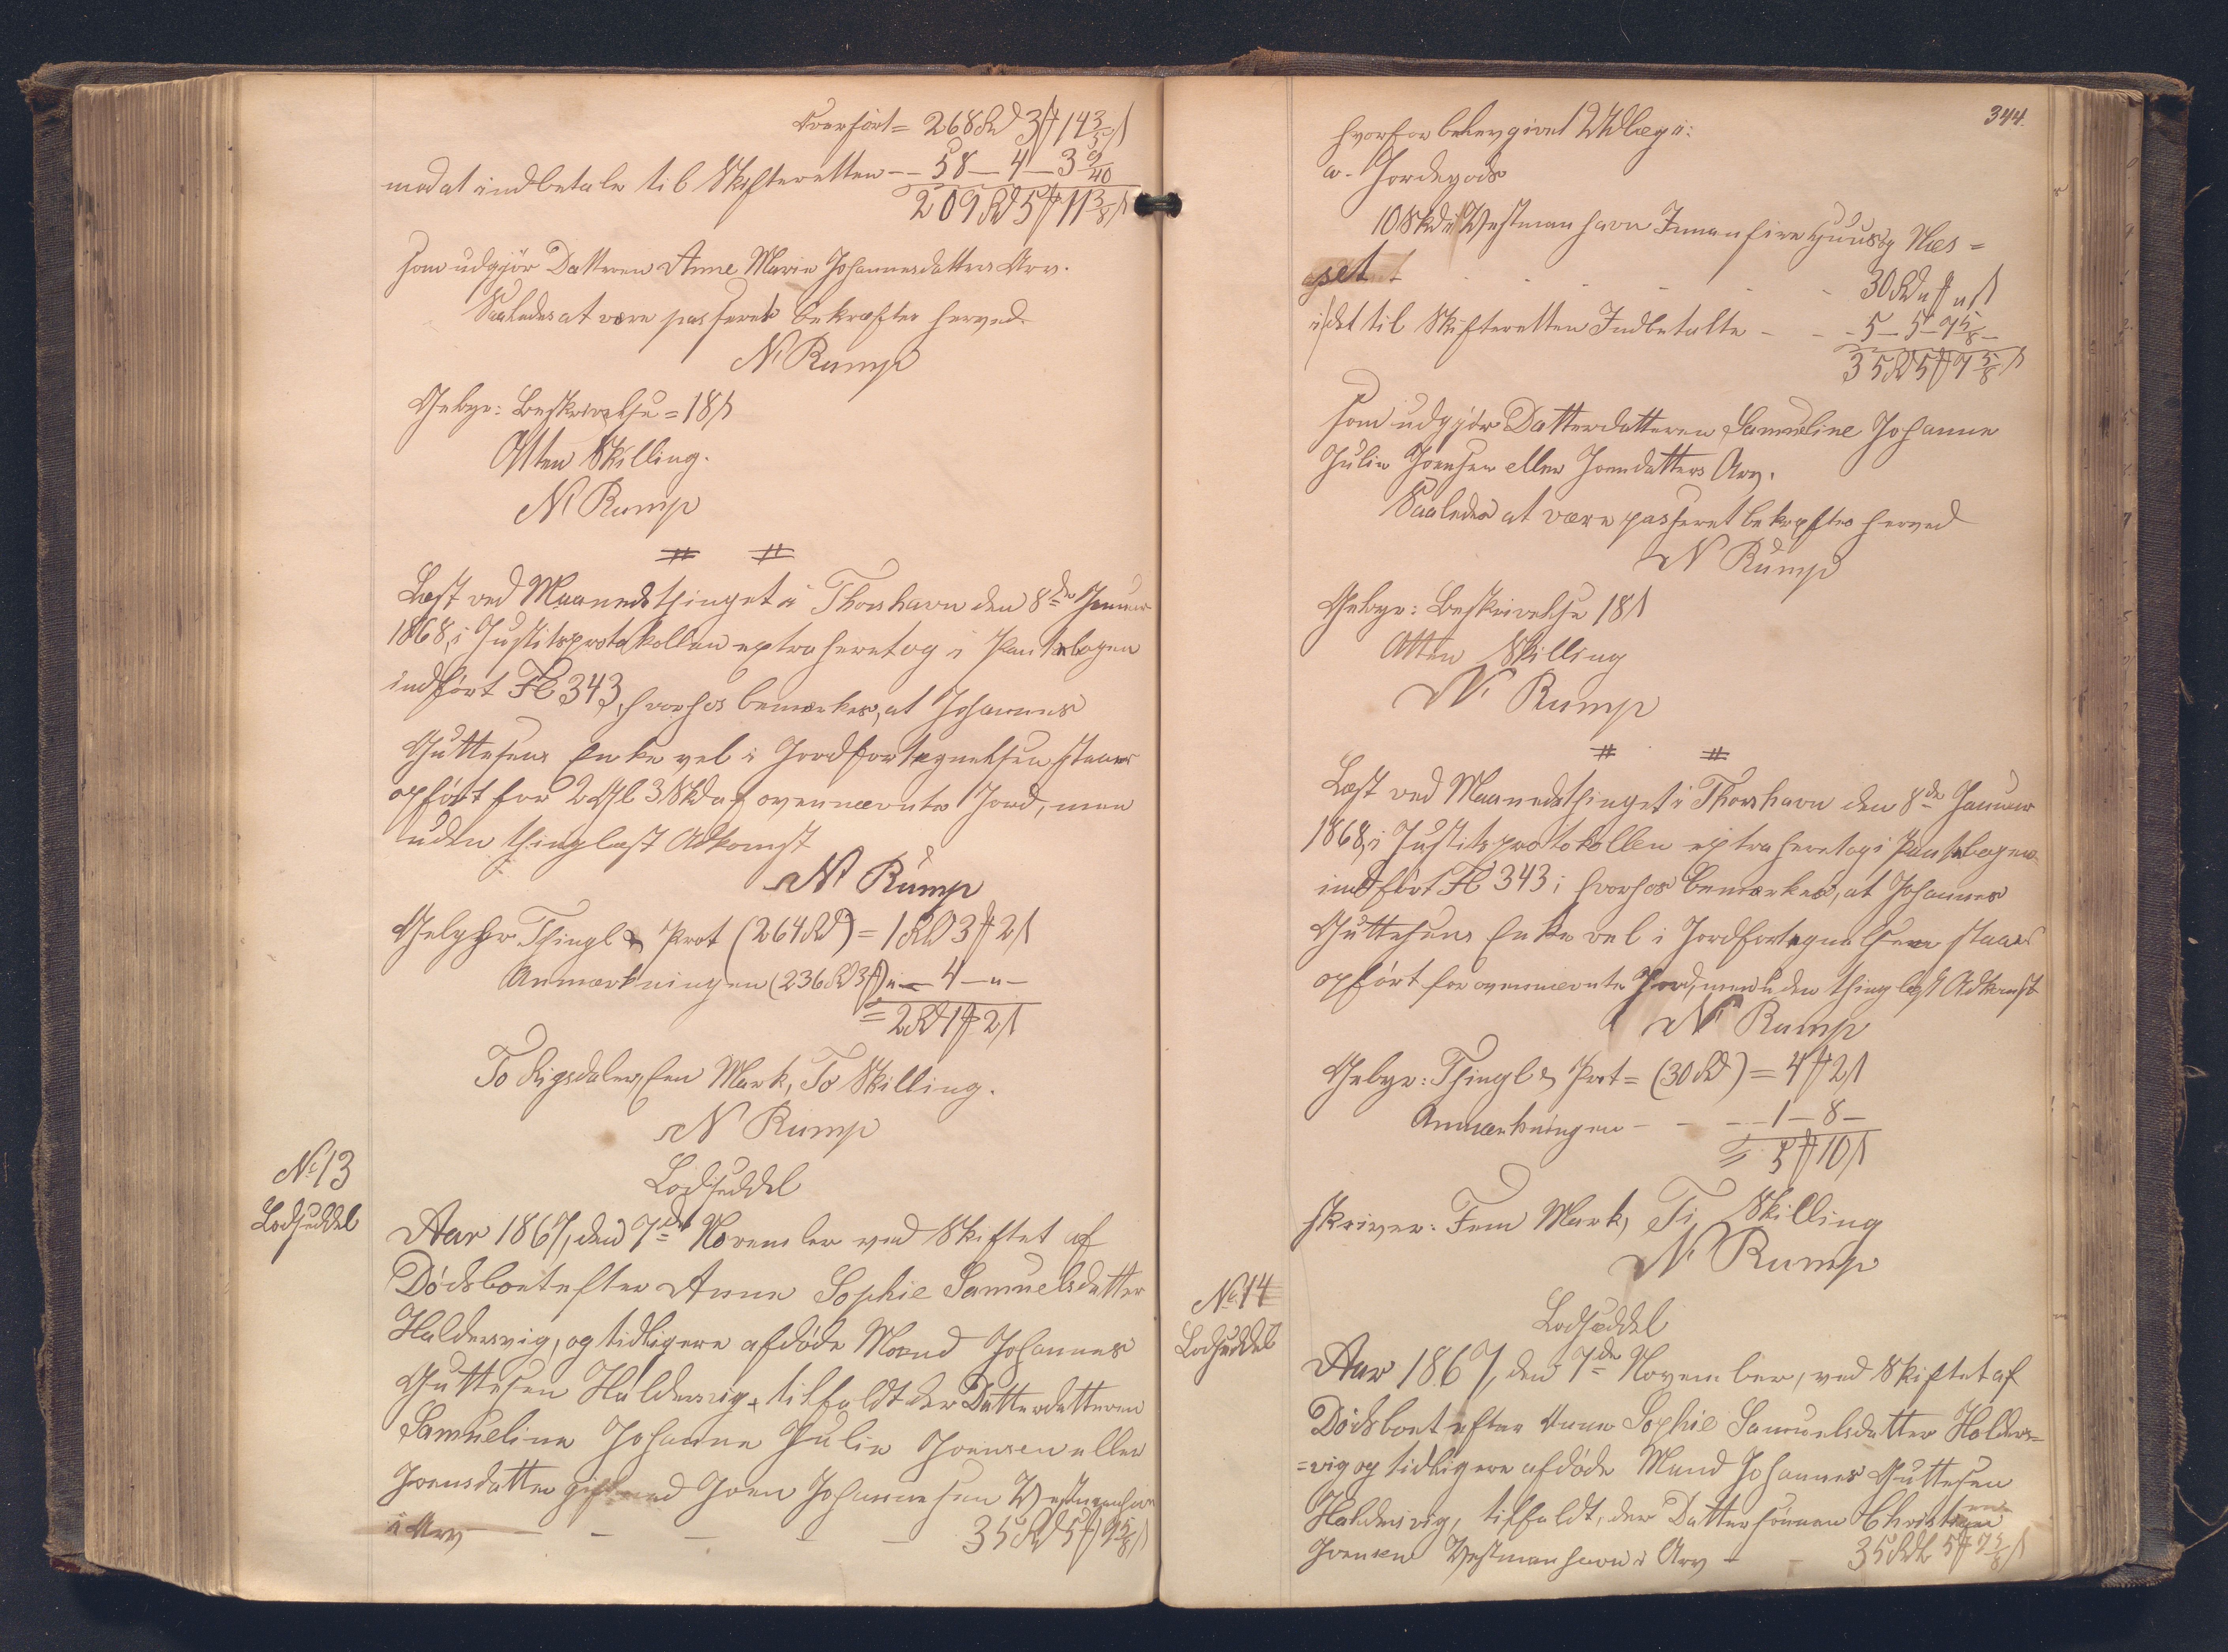 Overført = 268 Rd 3 ₰ 14 3/5 s
mod at indbetale til Skifteretten -- 58 — 4 — 3 9/40
209 Rd 5 ₰ 11 3/8 s
som udgjør Datteren Anne Marie Johannesdatters Arv.
Saaledes at være passeret bekræftes herved.
N. Rump
Gebyr: Beskrivelse = 18 s
Atten Skilling.
N. Rump
Læst ved Maanedsthinget i Thorshavn den 8de Januar
1868, i Justitsprotokollen extraheret og i Pantebogen
indført Fol 343, hvorhos bemærkes, at Johannes
Guttesens Enke vel i Jordfortegnelsen staaer
opført for 2 Gl 3 Skd af ovennævnte Jord, men
uden thinglæst Adkomst
N. Rump
Gebyr Thingl & Prot (264 Rd) = 1 Rd 3 ₰ 2 s
Anmærkningen (236 Rd 3 ₰) „ — 4 — „ —
= 2 Rd 1 ₰ 2 s
To Rigsdaler, Een Mark, To Skilling.
N Rump
No 13
Lodseddel
Lodseddel
Aar 1867, den 7de November ved Skiftet af
Dødsboet efter Anne Sophie Samuelsdatter
Haldersvig, og tidligere afdøde Mand Johannes
Guttesen Haldersvig, tilfaldt der Datterdatteren
Samueline Johanne Julie Joensen eller
Joensdatter gift med Joen Johannesen Westmanhavn
i Arv — — — — 35 Rd 5 ₰ 9 5/8 s
344.
hvorfor bekom givet Udlæg i:
a. Jordegods
10 Skd i Westmanhavn Innanfire Huusby Næs =
set - - - - 30 Rd „ ₰ „ s
i det til Skifteretten Indbetalte - - 5 — 5 — 9 5/8 —
35 Rd 5 ₰ 9 5/8 s
som udgjør Datterdatteren Samueline Johanne
Julie Joensen eller Joensdatters Arv.
Saaledes at være passeret bekræftes herved
N Rump
Gebyr: Beskrivelse 18 s
Atten Skilling
N. Rump
Læst ved Maanedsthinget i Thorshavn den 8de Januar
1868, i Justitsprotokollen extraheret og i Pantebogen
indført Fol 343; hvorhos bemærkes, at Johannes
Guttesens Enke vel i Jordfortegnelsen staaer
opført for ovennævnte Jord, men uden thinglæst Adkomst
N Rump
Gebyr: Thingl & Prot = (30 Rd) = 4 ₰ 2 s
Anmærkningen - - - 1 — 8 —
= 5 ₰ 10 s
skriver: Fem Mark, Ti Skilling
N. Rump
No. 14
Lodseddel
Lodseddel
Aar 1867, den 7de November, ved Skiftet af
Dødsboet efter Anne Sophie Samuelsdatter Halders=
=vig og tidligere afdøde Mand Johannes Guttesen
Haldersvig, tilfaldt, der Dattersønnen Christian
Joensen Westmanhavn i Arv — 35 Rd 5 ₰ 9 5/8 s